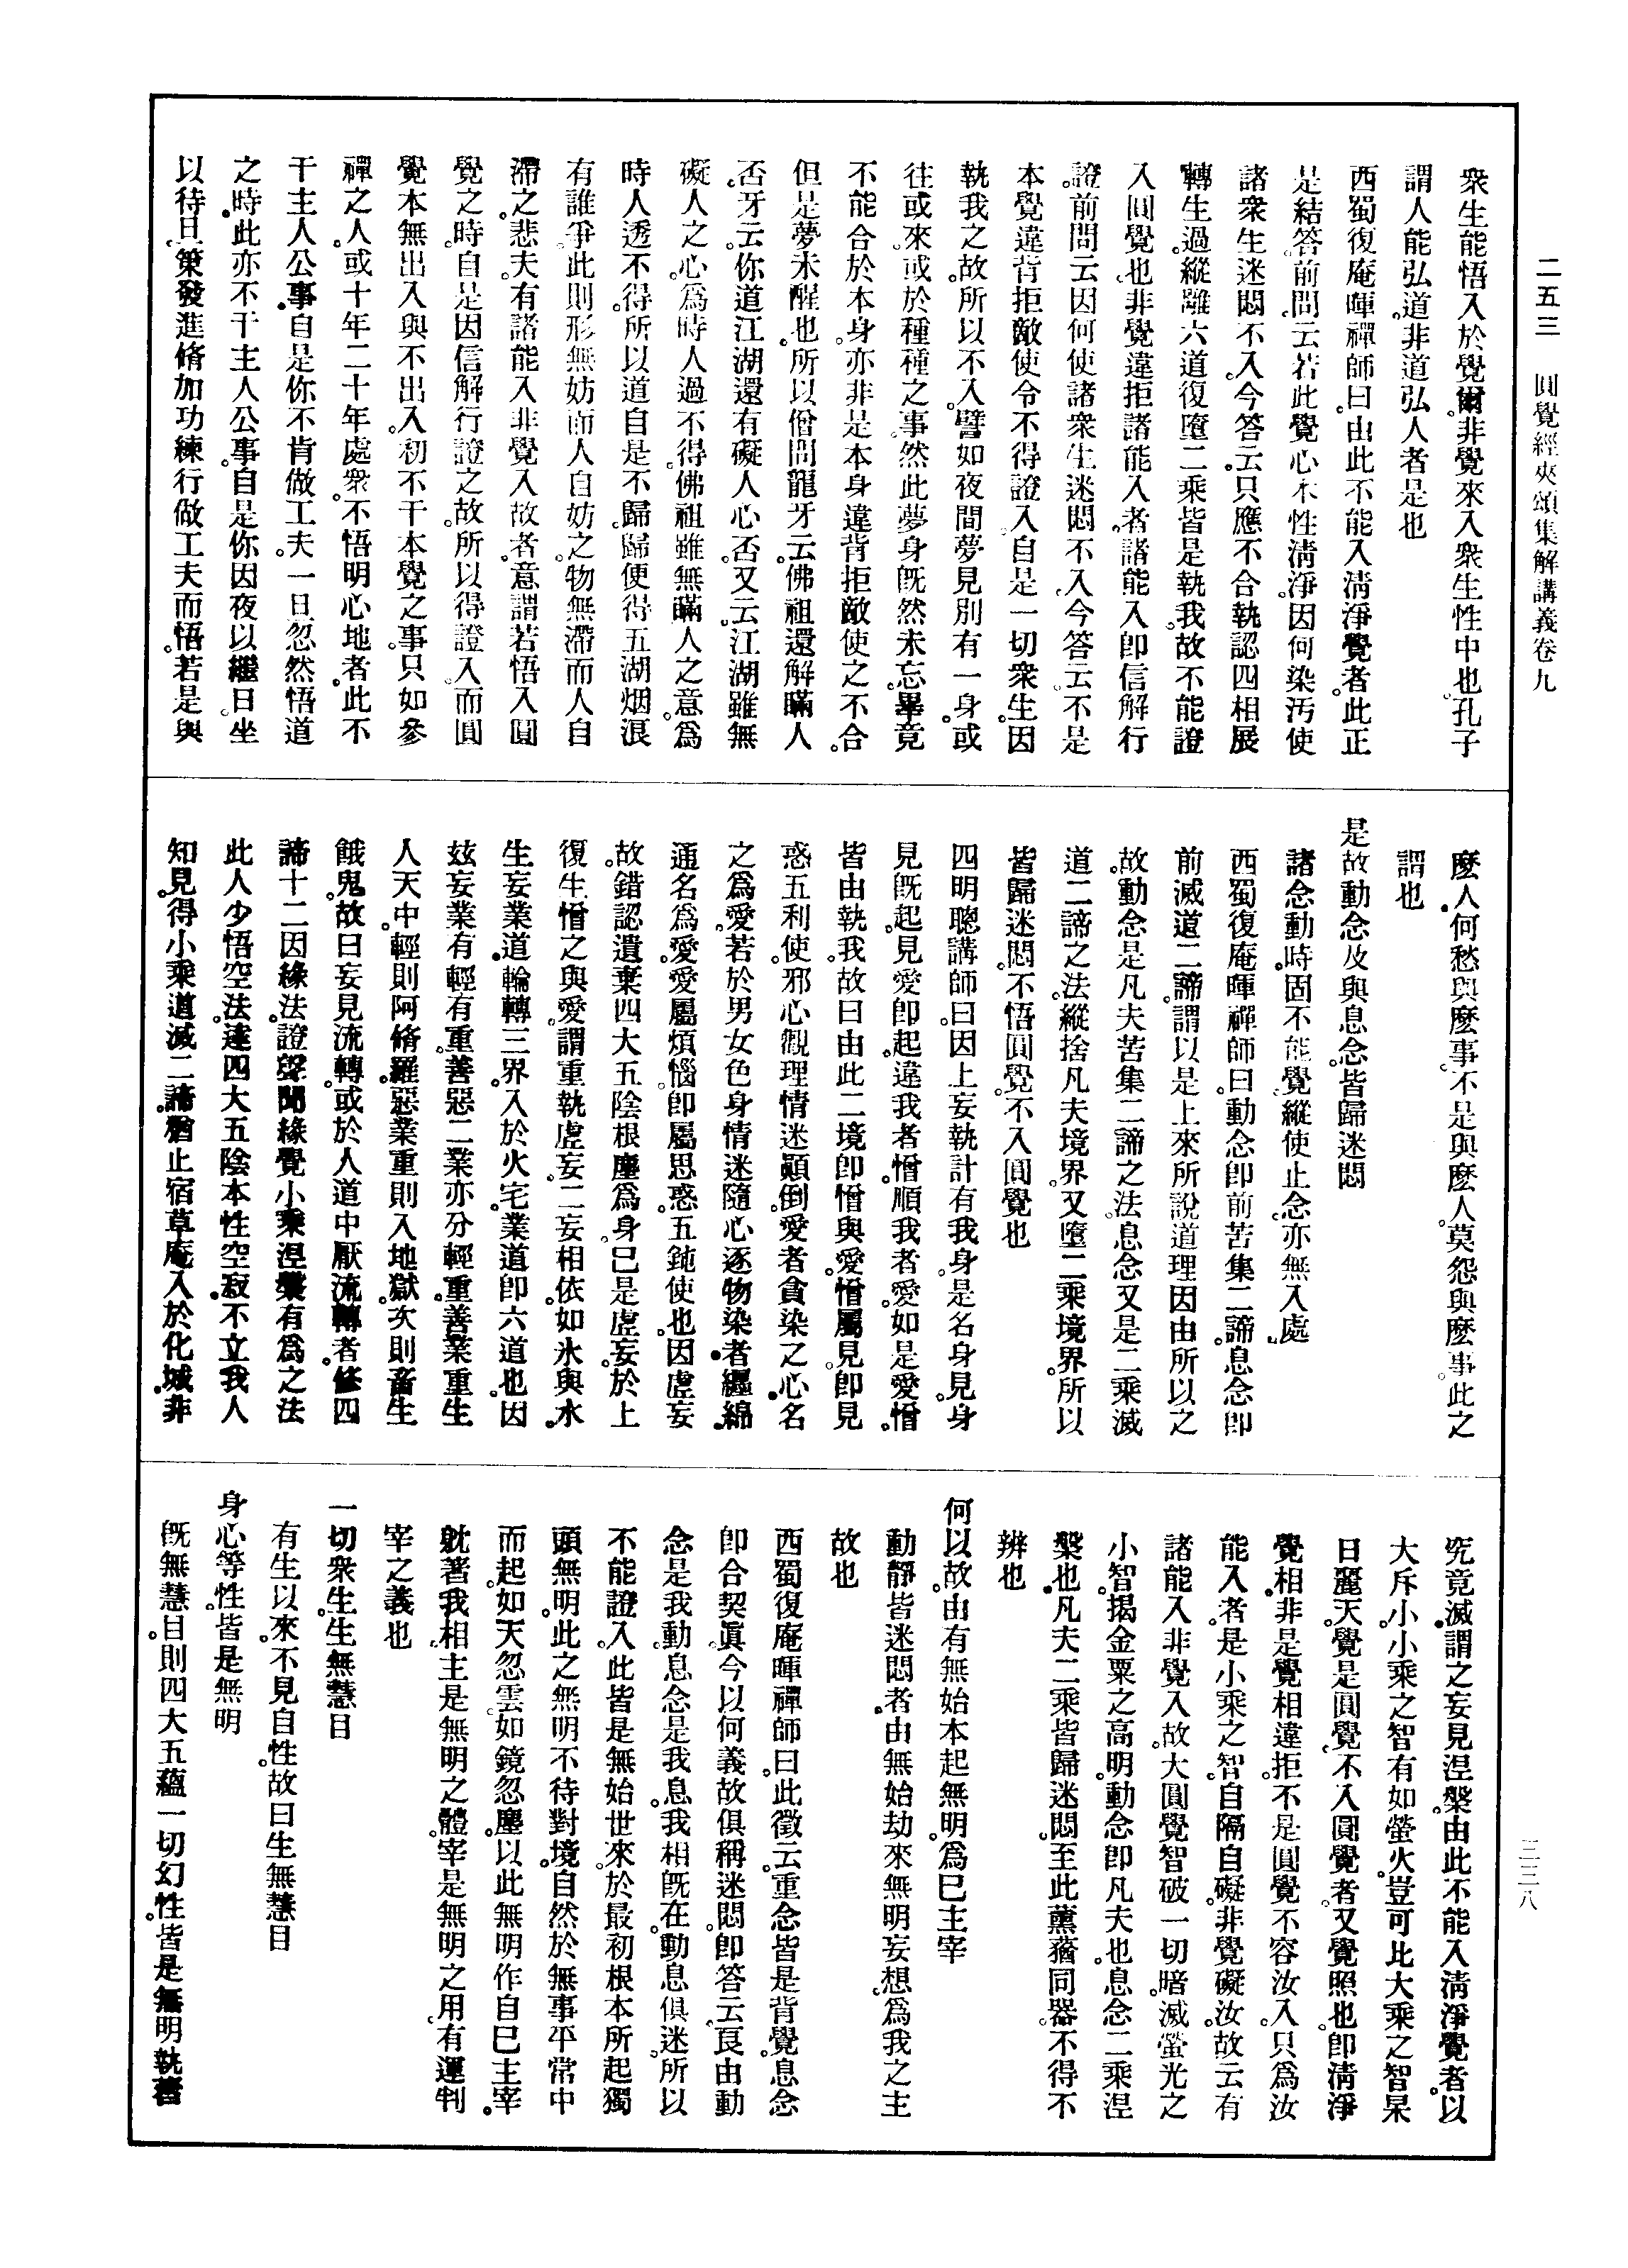 二五三　圓覺經夾頌集解講義卷九
三三八
衆生能悟入於覺爾。非覺來入衆生性中也。孔子
謂人能弘道。非道弘人者是也
西蜀復庵暉禪師曰。由此不能入淸淨覺者。此正
是結答。前問云若此覺心本性淸淨。因何染汚使
諸衆生迷悶不入。今答云。只應不合執認四相展
轉生過。縱離六道復墮二乘皆是執我。故不能證
入圓覺也。非覺違拒諸能入者。諸能入卽信解行
證。前問云因何使諸衆生迷悶不入。今答云。不是
本覺違背拒敵使令不得證入。自是一切衆生。因
執我之故。所以不入。譬如夜間夢見別有一身。或
往或來。或於種種之事。然此夢身旣然未忘。畢竟
不能合於本身。亦非是本身違背拒敵使之不合。
但是夢未醒也。所以僧問龍牙云。佛祖還解瞞人
否。牙云。你道江湖還有礙人心否。又云。江湖雖無
礙人之心。爲時人過不得。佛祖雖無瞞人之意。爲
時人透不得。所以道自是不歸歸便得五湖烟浪
有誰爭。此則形無妨而人自妨之。物無滯而人自
滯之。悲夫。有諸能入非覺入故者。意謂若悟入圓
覺之時。自是因信解行證之故。所以得證入。而圓
覺本無出入與不出入。初不干本覺之事。只如參
禪之人。或十年二十年處衆。不悟明心地者。此不
干主人公事。自是你不肯做工夫。一旦忽然悟道
之時。此亦不干主人公事。自是你因夜以繼日。坐
以待旦。策發進脩加功練行做工夫而悟。若是與
麽人。何愁與麽事。不是與麽人。莫怨與麽事。此之
謂也
是故動念及與息念。皆歸迷悶
諸念動時。固不能覺。縱使止念。亦無入處。
西蜀復庵暉禪師曰。動念卽前苦集二諦。息念卽
前滅道二諦。謂以是上來所說道理因由所以之
故。動念是凡夫苦集二諦之法。息念又是二乘滅
道二諦之法。縱捨凡夫境界。又墮二乘境界。所以
皆歸迷悶。不悟圓覺。不入圓覺也
四明聰講師曰。因上妄執計有我身。是名身見。身
見旣起。見愛卽起。違我者憎。順我者愛。如是愛憎。
皆由執我。故曰由此二境卽憎與愛。憎屬見。卽見
惑五利使。邪心觀理情迷顚倒。愛者貪染之心。名
之爲愛。若於男女色身情迷隨心逐物染者纏綿。
通名爲愛。愛屬煩惱。卽屬思惑。五鈍使也。因虛妄
故。錯認遺棄四大五陰根塵爲身。已是虛妄。於上
復生憎之與愛。謂重執虛妄。二妄相依。如氷與水。
生妄業道。輪轉三界。入於火宅。業道卽六道也。因
玆妄業有輕有重。善惡二業亦分輕重。善業重生
人天中。輕則阿脩羅。惡業重則入地獄。次則畜生
餓鬼。故曰妄見流轉。或於人道中厭流轉者。修四
諦十二因緣法。證聲聞緣覺小乘涅槃有爲之法
此人少悟空法。達四大五陰本性空寂。不立我人
知見。得小乘道滅二諦。暫止宿草庵。入於化城。非
究竟滅。謂之妄見涅槃。由此不能入淸淨覺者。以
大斥小。小乘之智有如螢火。豈可比大乘之智杲
日麗天。覺是圓覺。不入圓覺者。又覺照也。卽淸淨
覺相。非是覺相違拒。不是圓覺不容汝入。只爲汝
能入者。是小乘之智。自隔自礙。非覺礙汝。故云有
諸能入非覺入故。大圓覺智破一切暗。滅螢光之
小智。揭金粟之高明。動念卽凡夫也。息念二乘涅
槃也。凡夫二乘皆歸迷悶。至此薰蕕同器。不得不
辨也
何以故。由有無始本起無明。爲已主宰
動靜皆迷悶者。由無始劫來無明妄想。爲我之主
故也
西蜀復庵暉禪師曰。此徵云。重念皆是背覺。息念
卽合契眞。今以何義故。俱稱迷悶。卽答云。良由動
念是我動。息念是我息。我相旣在。動息俱迷。所以
不能證入。此皆是無始世來。於最初根本所起獨
頭無明。此之無明不待對境。自然於無事平常中
而起。如天忽雲。如鏡忽塵。以此無明作自已主宰。
躭著我相。主是無明之體。宰是無明之用。有運判
宰之義也
一切衆生。生無慧目
有生以來。不見自性。故曰生無慧目
身心等性。皆是無明
旣無慧目。則四大五蘊一切幻性。皆是無明執著